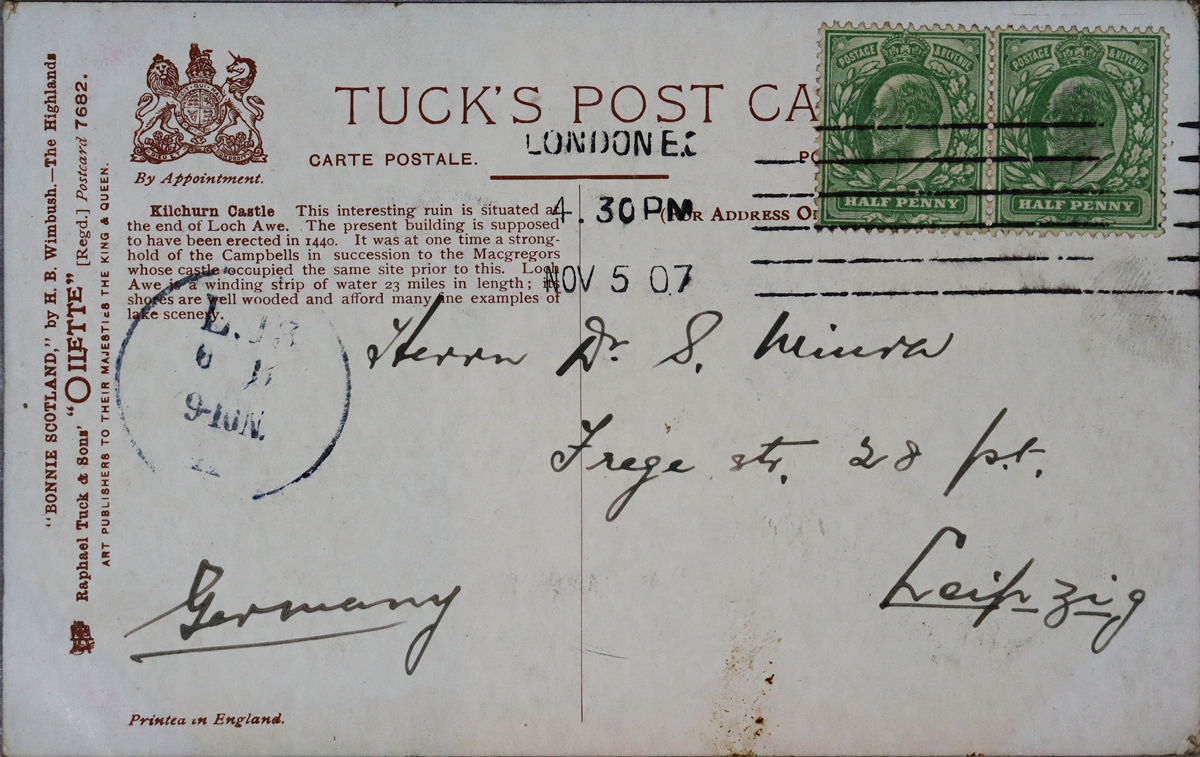 "BONNIE SCOTLAND," by H. B. Wimbush.—The Highlands
Raphael Tuck & Sons' "OILETTE" [Regd.] Postcard 7682.
ART PUBLISHERS TO THEIR MAJESTIES THE KING & QUEEN.
By Appointment.
TUCK'S POST CA
CARTE POSTALE.
POSTAGE & REVENUE
HALF PENNY
POSTAGE & REVENUE
HALF PENNY
LONDON E.C
4. 30 PM
NOV 5 07
Kilchurn Castle This interesting ruin is situated at
the end of Loch Awe. The present building is supposed
to have been erected in 1440. It was at one time a strong-
hold of the Campbells in succession to the Macgregors
whose castle occupied the same site prior to this. Loch
Awe is a winding strip of water 23 miles in length; its
shores are well wooded and afford many fine examples of
lake scenery.
R ADDRESS O
9-10 N.
Herrn Dr. S. Minra
Frege str. 28 pt.
Leipzig
Germany
Printed in England.